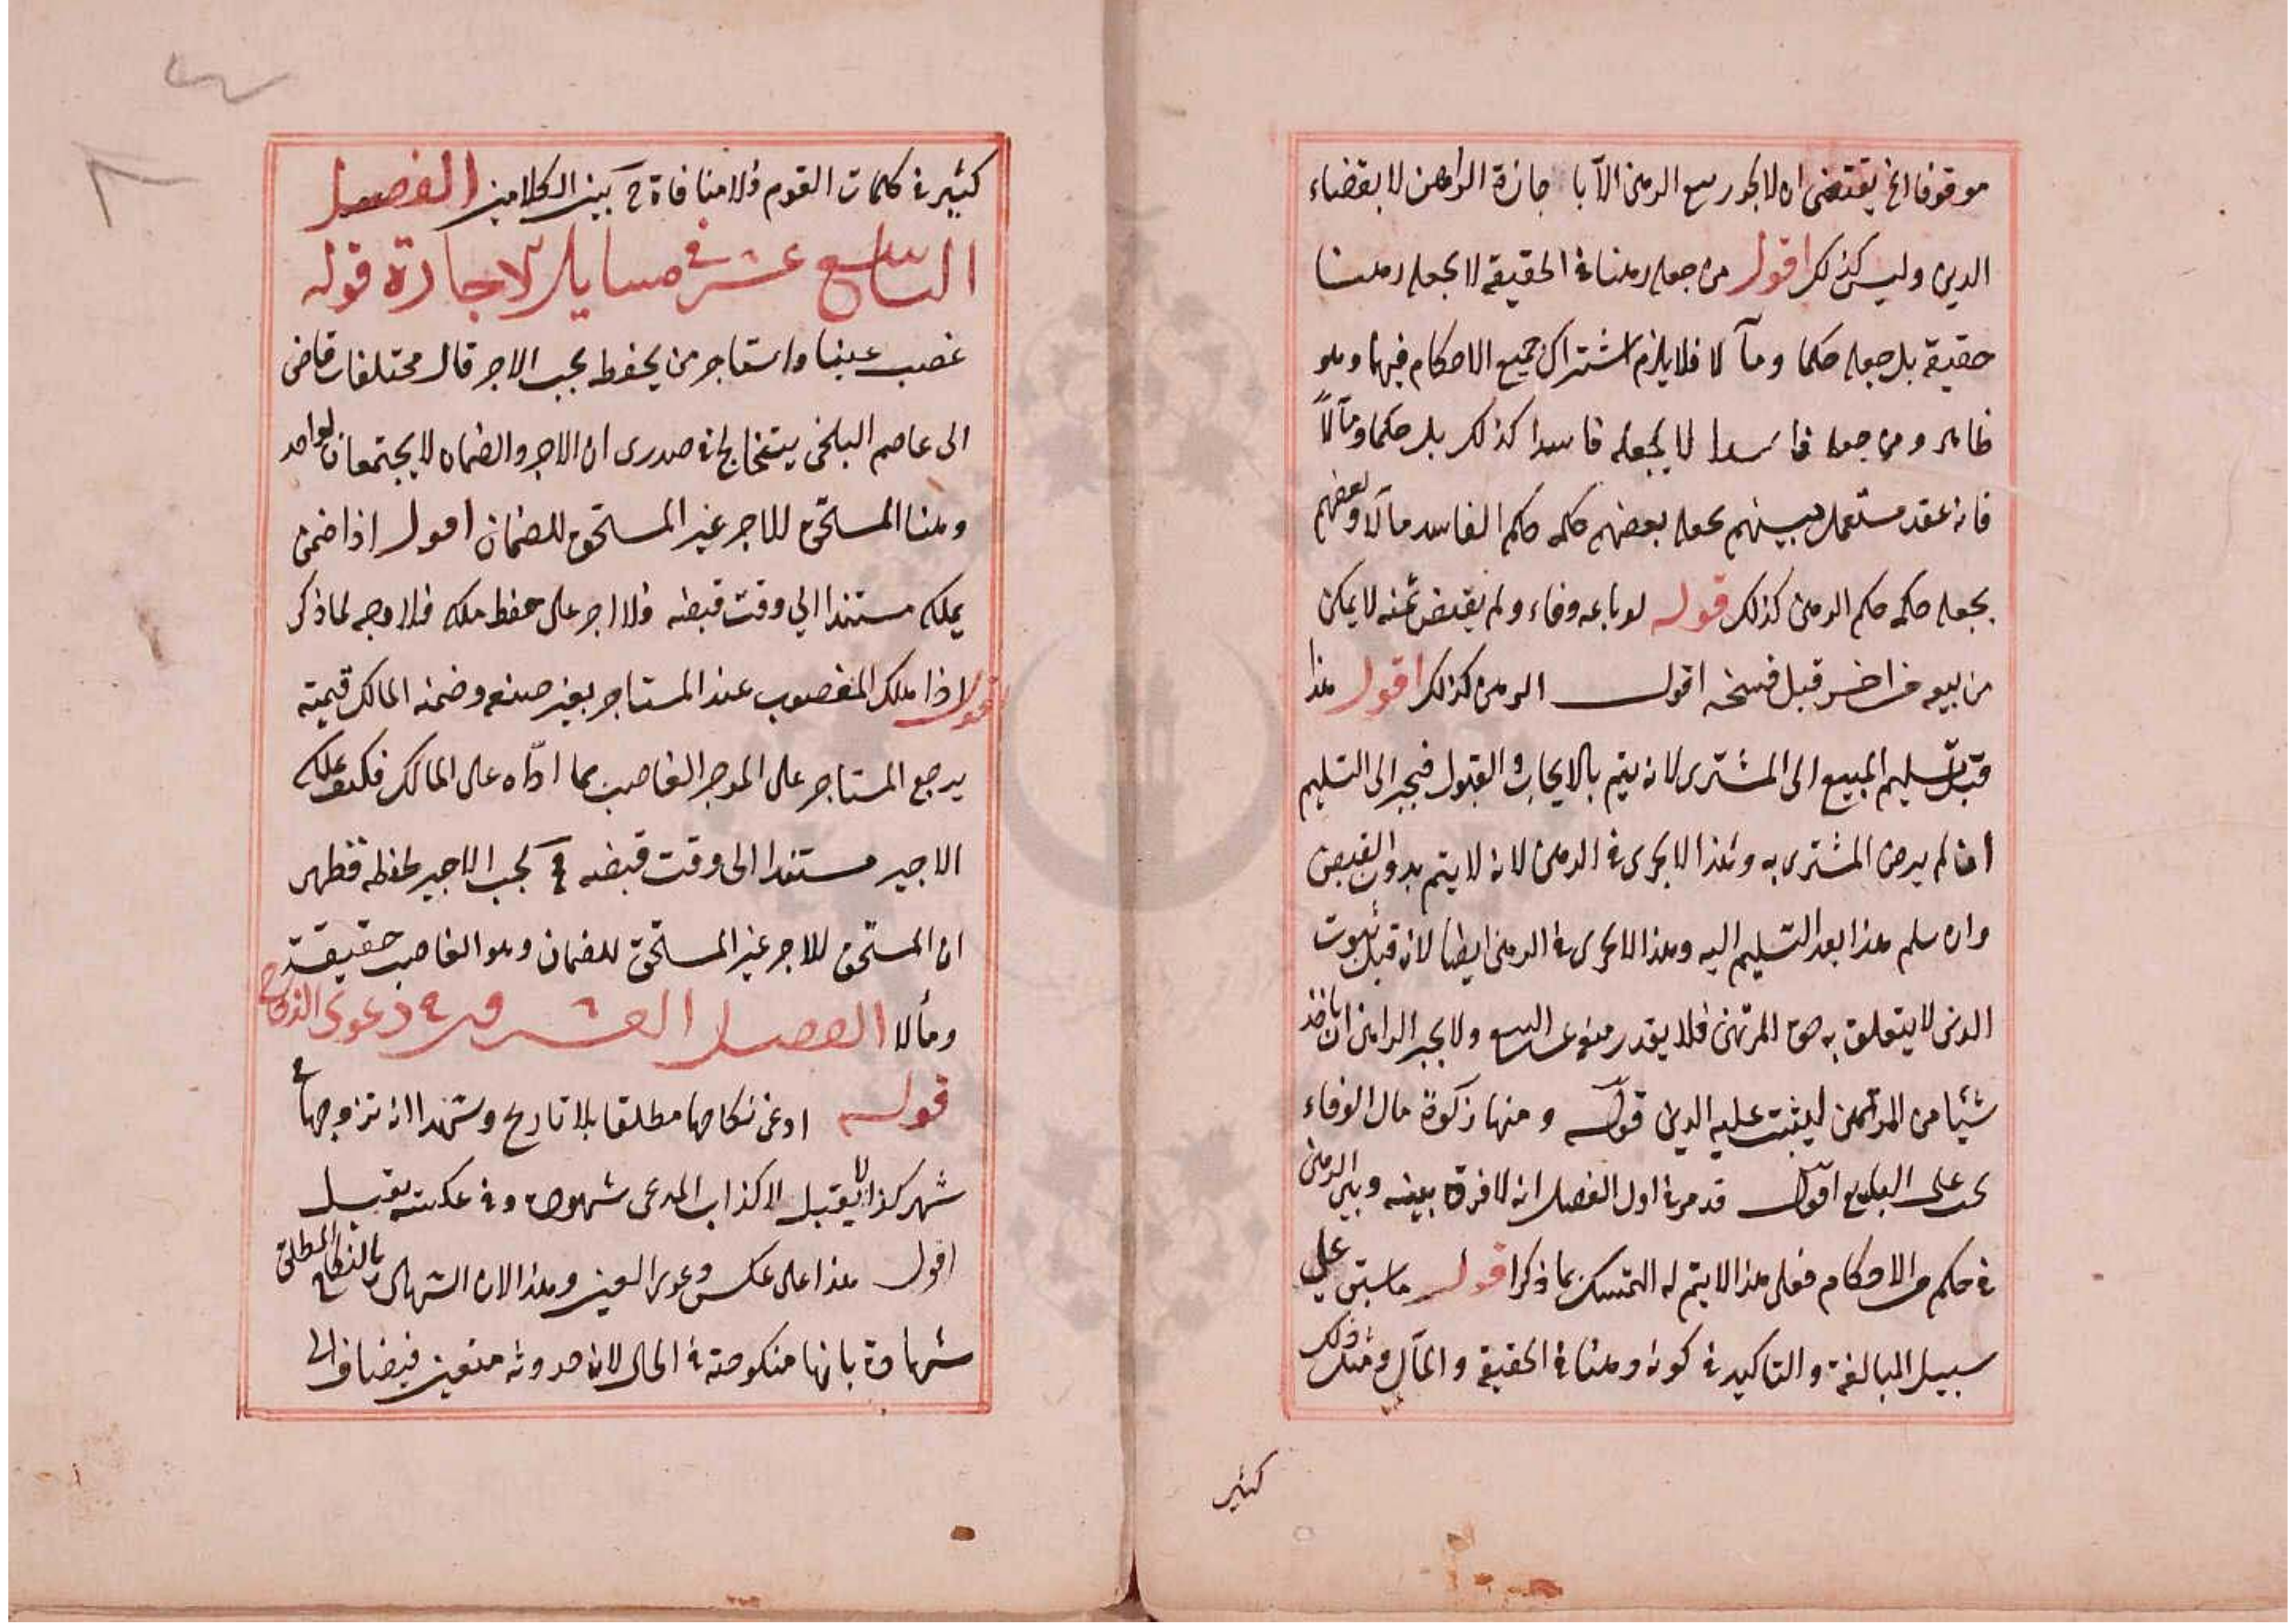 موقوفا الخ يقتضى ان لا يجوز بيع الرهن الا با جازة الراهن لا بقضاء
الدين وليس كذلك اقول من جعله رهنا فى الحقيقة لا يجعله رهنا
حقيقة بل جعله حكما ومآلا فلا يلزم اشتراك جميع الاحكام فيهما وهو
ظاهر ومن جعله فاسدا لا يجعله فاسدا كذلك بل حكما ومآلاً
فانه عقد مستعمل بينهم يجعله بعضهم حكمه حكم الفاسد مآلا وبعضهم
يجعله حكمه حكم الرهن كذلك قوله لو باعه وفاء ولم يقبض ثمنه لا يمكن
من بيعه من اخر قبل فسخه اقول الرهن كذلك اقول هذا
قبل تسليم المبيع الى المشترى لانه يتم بالايجاب والقبول فيجبر الى التسليم
ان لم يرض المشترى به وهذا لا يجرى فى الرهن لانه لا يتم بدون القبض
وان سلم هذا بعد التسليم اليه وهذا لا يجرى فى الرهن ايضا لان قبل ثبوت
الدين لا يتعلق به حق المرتهن فلا يقدر منع عن البيع ولا يجبر الراهن ان ياخذ
شيئا من المرتهن ليثبت عليه الدين قوله ومنها زكوة مال الوفاء
يجب على البايع اقول قد مر فى اول الفصل انه لا فرق بينه وبين الرهن
فى حكم من الاحكام فعلى هذا لا يتم له التمسك بما ذكر اقول ما سبق على
سبيل المبالغة والتاكيد فى كونه رهنا فى الحقيقة والمآل ومثل ذلك
كثير
كثير فى كلمات القوم فلا منافاة ح بين الكلامين الفصل
التاسع عشر فى مسايل الاجارة قوله
غصب عينا واستاجر من يحفظ يجب الاجر قال مختلفات قاضى
ابى عاصم البلخى يتخالج فى صدرى ان الاجر والضمان لا يجتمعان لواحد
وهنا المستحق للاجر غير المستحق للضمان اقول اذا ضمن
يملكه مستندا الى وقت قبضه فلا اجر على حفظ ملكه فلا وجه لما ذكر
اقول اذا هلك المغصوب عند المستاجر بغير صنعه وضمنه المالك قيمته
يرجع المستاجر على الموجر الغاصب بما اداه على المالك فكيف يملكه
الاجير مستندا الى وقت قبضه ف يجب الاجير لحفظه فظهر
ان المستحق للاجر غير المستحق للضمان وهو الغاصب حقيقة
ومآلا الفصل العشرون فى دعوى النكاح
قوله ادعى نكاحها مطلقا بلا تاريخ وشهدا انه تزوجها فى
شهر كذا لا يقبل لاكذاب المدعى شهوده وفى عكسه يقبل
اقول هذا على عكس دعوى العين وهذا لان الشهادة بالنكاح المطلق
شهادة بانها منكوحته فى الحال لان حدوثه متعين فيضاف الى